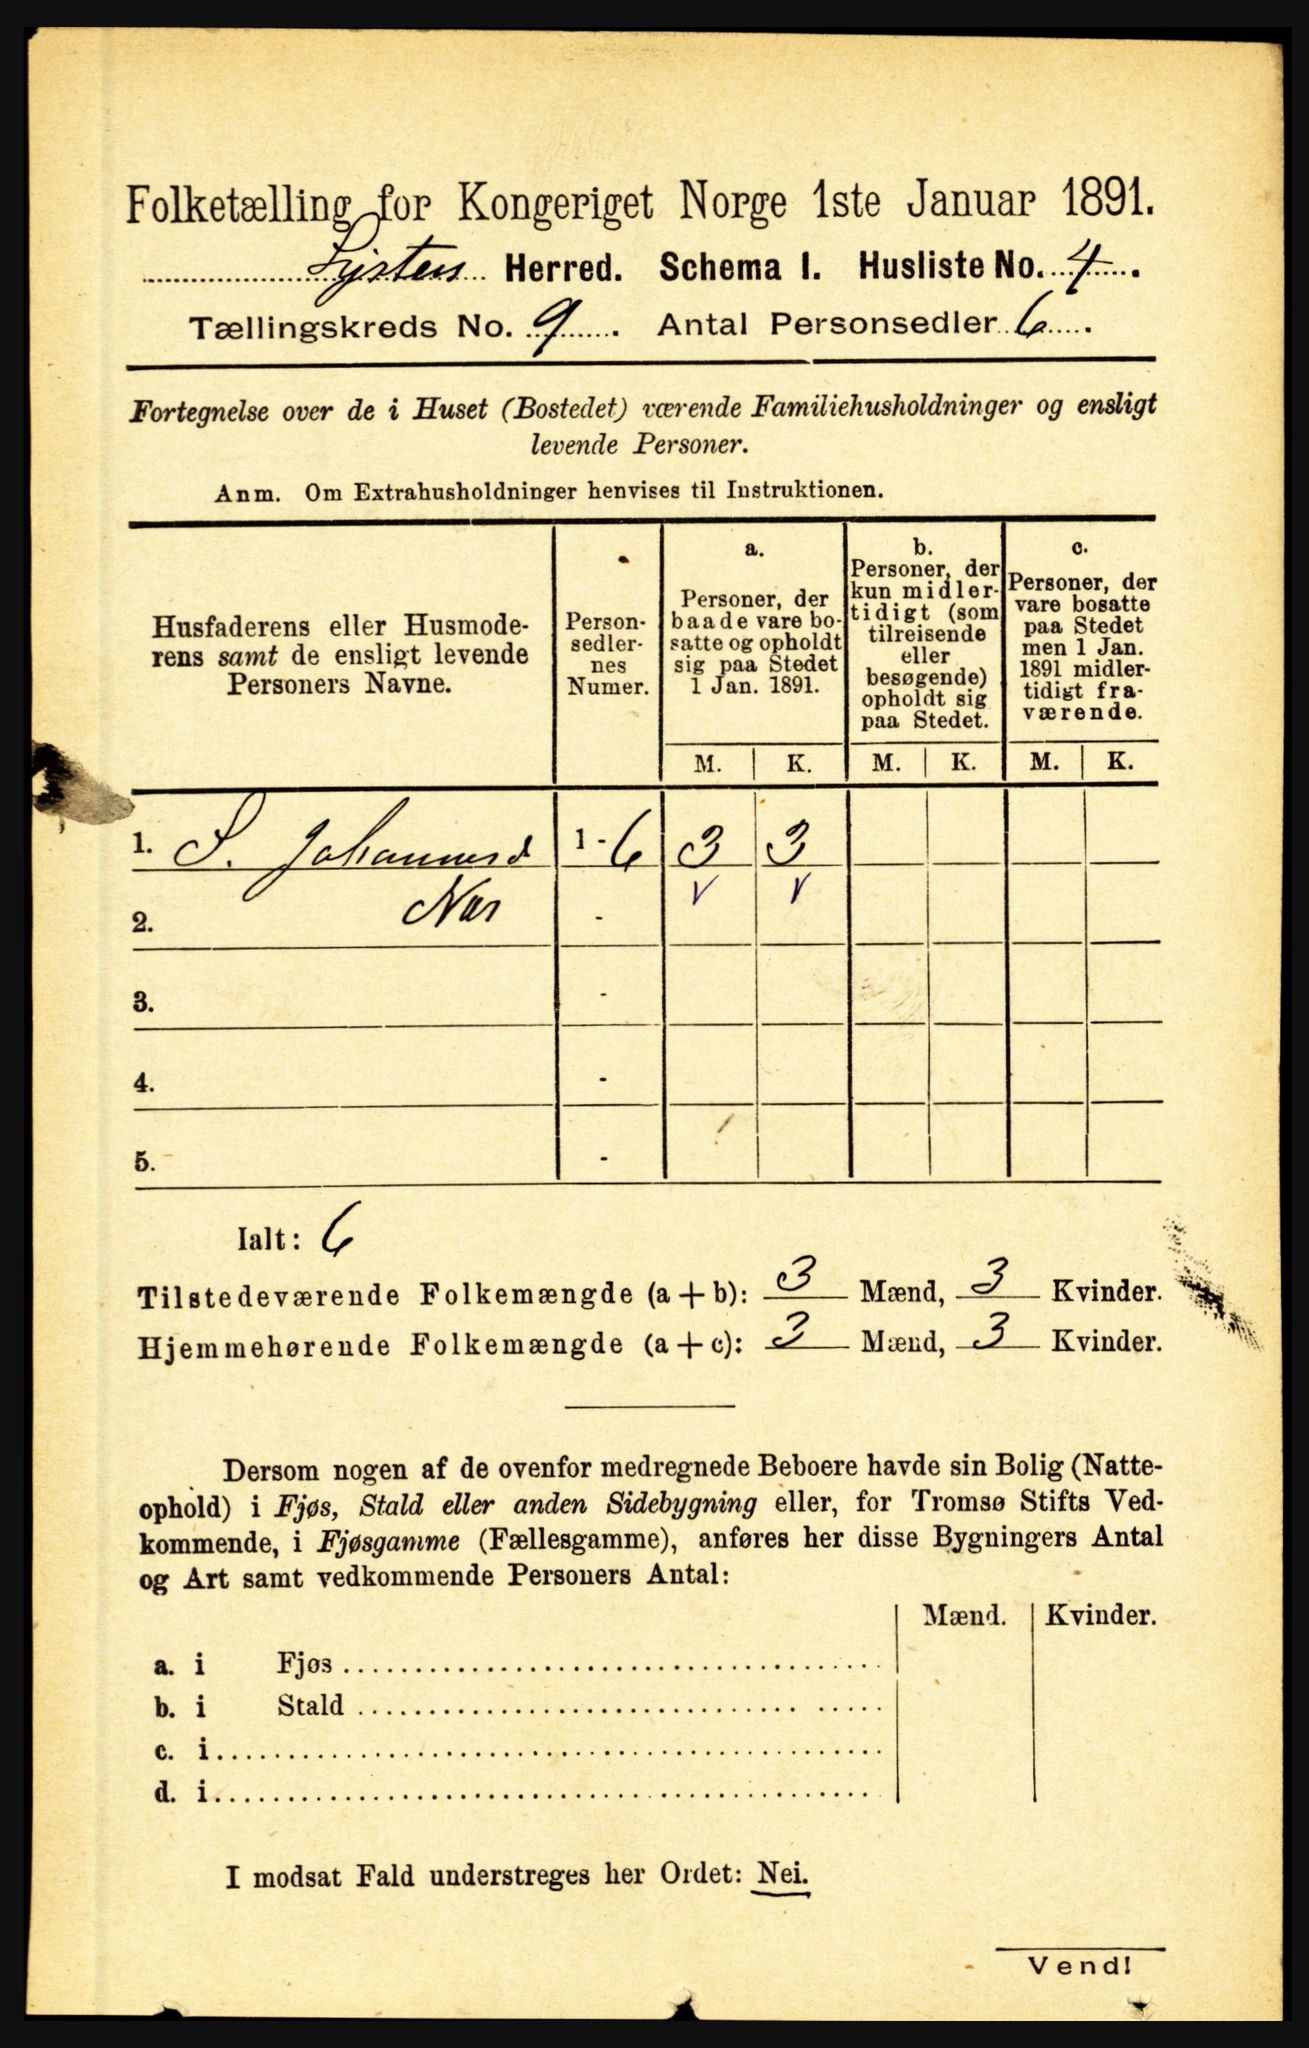 Folketælling for Kongeriget Norge 1ste Januar 1891.
Lyster Herred. Schema I. Husliste No. 4.
Tællingskreds No. 9. Antal Personsedler 6.
Fortegnelse over de i Huset (Bostedet) værende Familiehusholdninger og ensligt
levende Personer.
Anm. Om Extrahusholdninger henvises til Instruktionen.
Husfaderens eller Husmode-
rens samt de ensligt levende
Personers Navne.
Person-
sedler-
nes
Numer.
a.
Personer, der
baade vare bo-
satte og opholdt
sig paa Stedet
1 Jan. 1891.
b.
Personer, der
kun midler-
tidigt (som
tilreisende
eller
besøgende)
opholdt sig
paa Stedet.
c.
Personer, der
vare bosatte
paa Stedet
men 1 Jan.
1891 midler-
tidigt fra-
værende.
M. K. M. K. M. K.
1. S. Johannesd 1 - 6 3 3
2. Næs - v v
3. -
4. -
5. -
Ialt: 6
Tilstedeværende Folkemængde (a + b): 3 Mænd, 3 Kvinder.
Hjemmehørende Folkemængde (a + c): 3 Mænd, 3 Kvinder.
Dersom nogen af de ovenfor medregnede Beboere havde sin Bolig (Natte-
ophold) i Fjøs, Stald eller anden Sidebygning eller, for Tromsø Stifts Ved-
kommende, i Fjøsgamme (Fællesgamme), anføres her disse Bygningers Antal
og Art samt vedkommende Personers Antal:
Mænd. Kvinder.
a. i Fjøs
b. i Stald
c. i
d. i
I modsat Fald understreges her Ordet: Nei.
Vend!